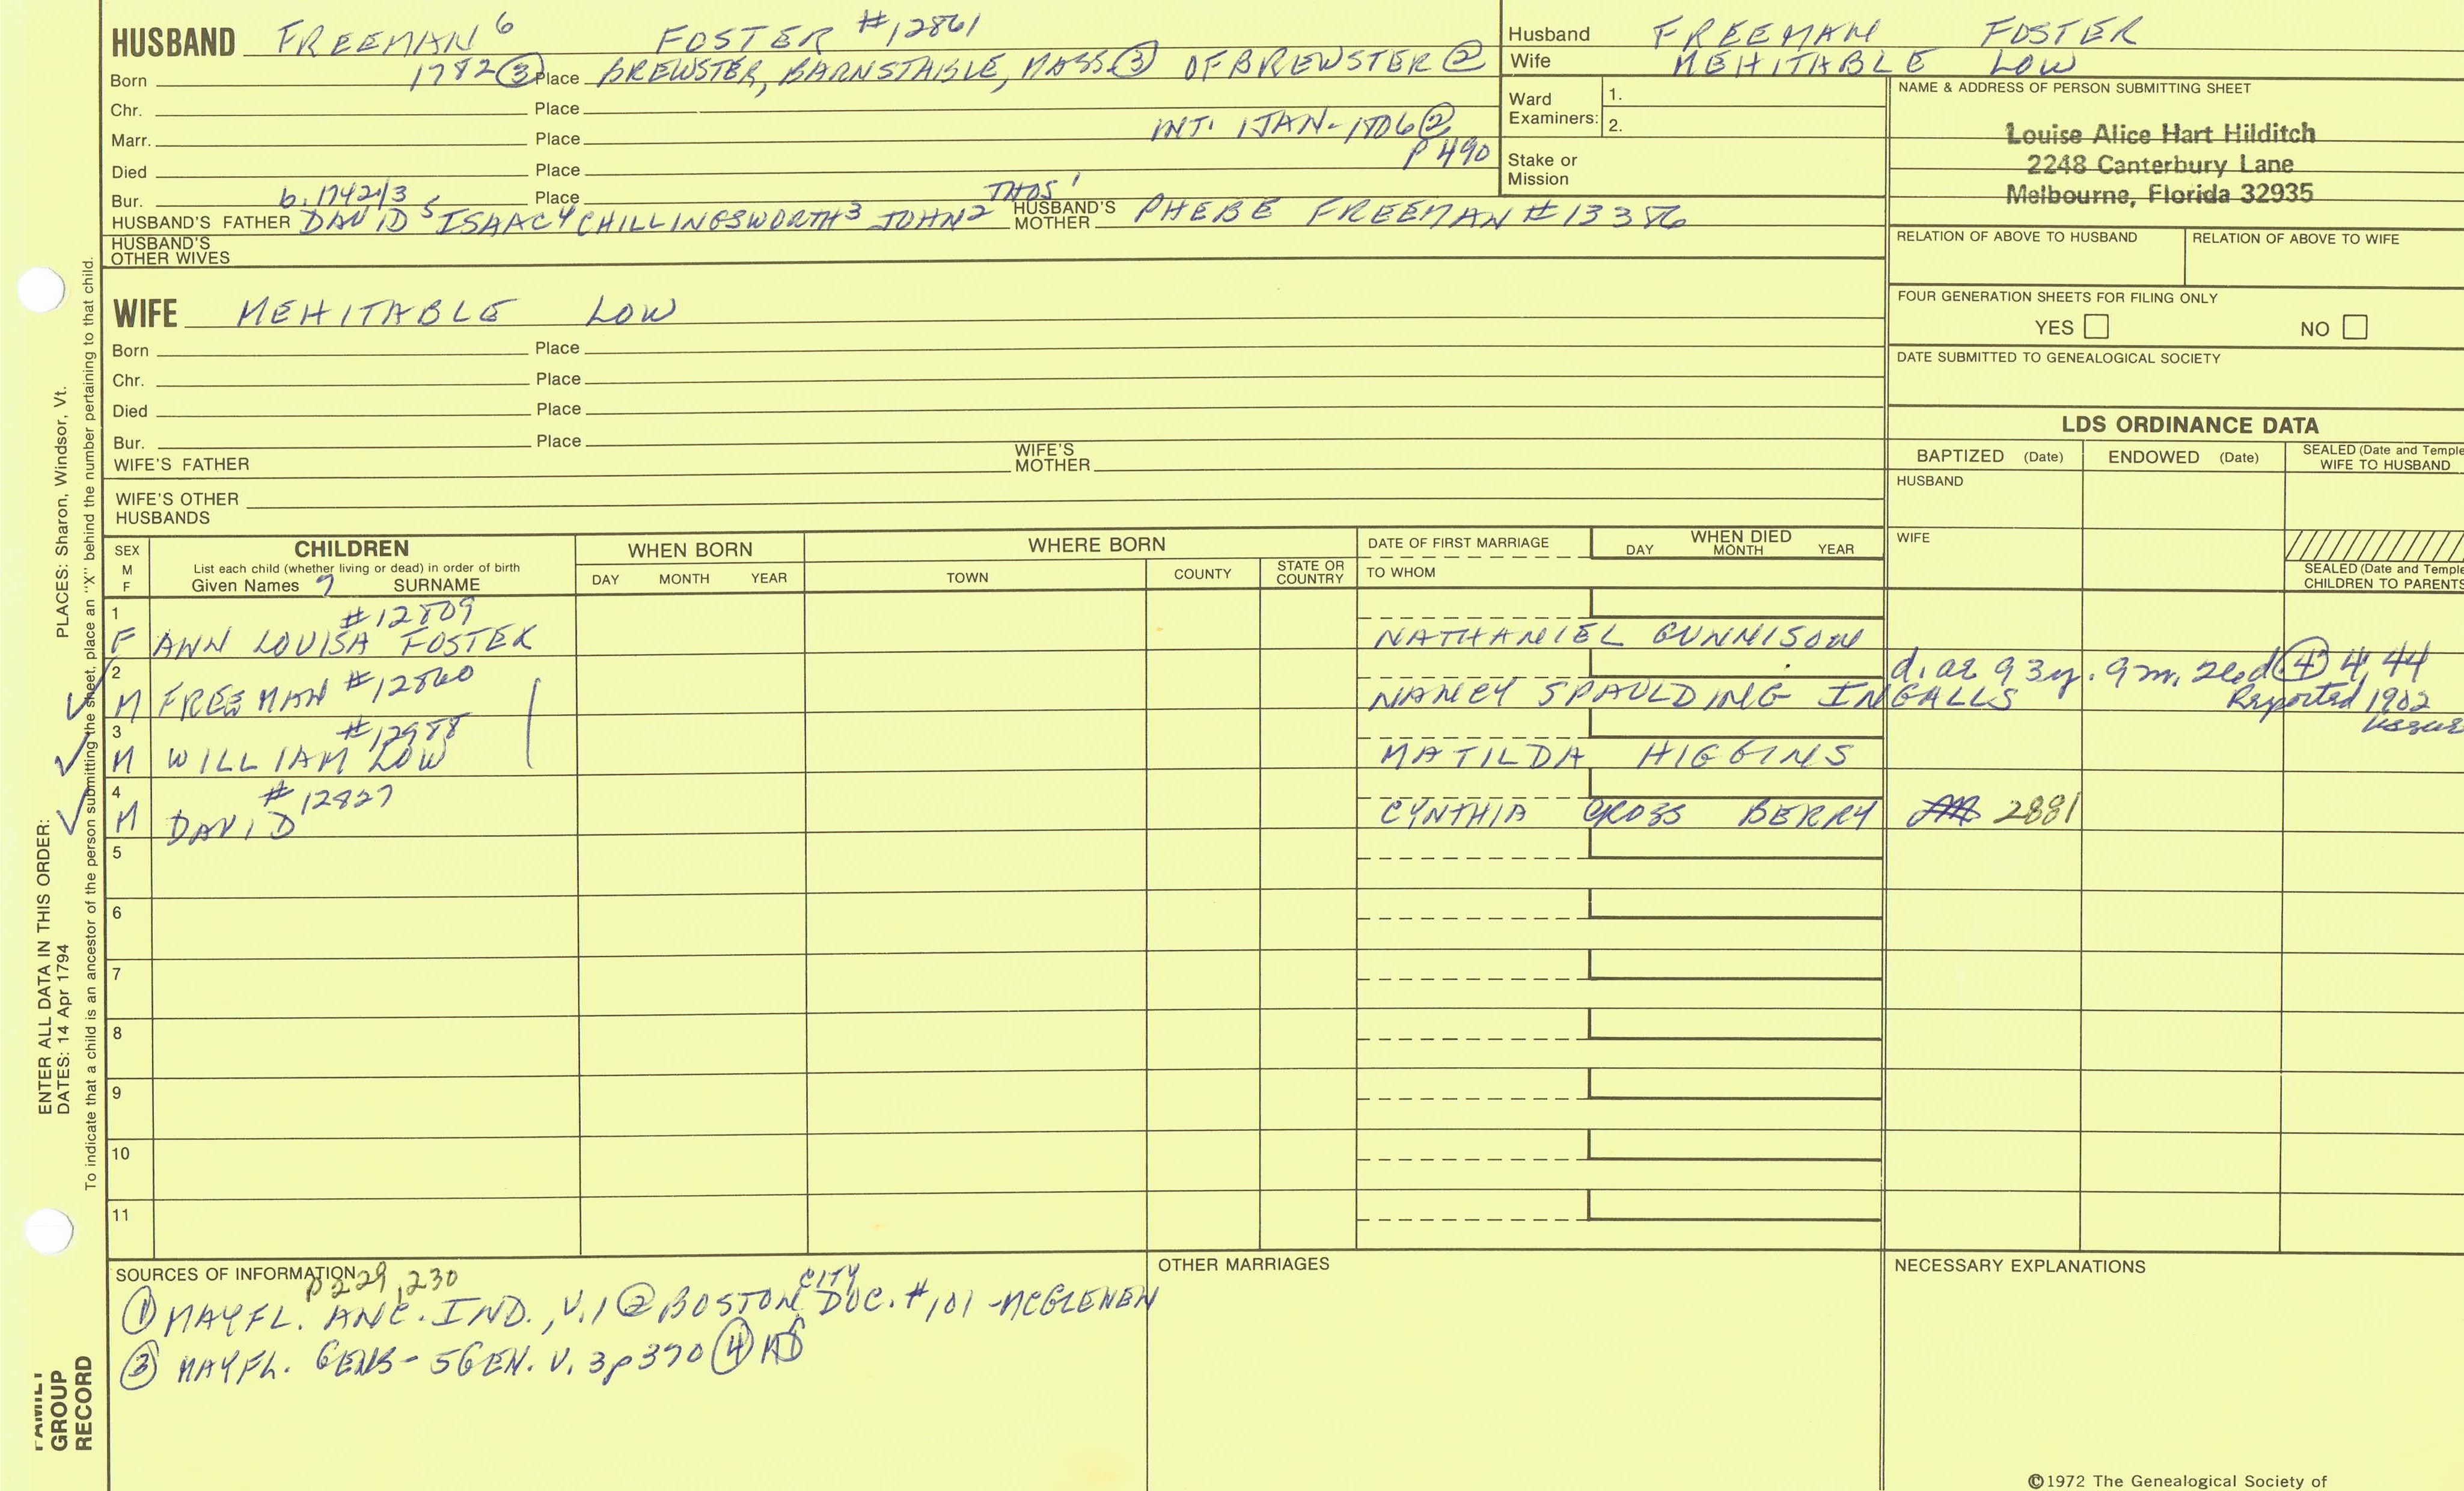 HUSBAND FREEMAN 6 FOSTER #12861
Born 1782 ③ Place BREWSTER, BARNSTABLE, MASS. ③ OF BREWSTER ②
Chr. Place
Marr. Place INT. 1 JAN-1806 ②
P 490
Died Place
Bur. Place
b. 1742/3
HUSBAND'S FATHER DAVID 5 ISAAC 4 CHILLINGSWORTH 3 JOHN 2 THOS 1
HUSBAND'S MOTHER PHEBE FREEMAN #13386
HUSBAND'S OTHER WIVES
Husband FREEMAN FOSTER
Wife MEHITABLE LOW
Ward Examiners: 1.
2.
Stake or Mission
NAME & ADDRESS OF PERSON SUBMITTING SHEET
Louise Alice Hart Hilditch
2248 Canterbury Lane
Melbourne, Florida 32935
RELATION OF ABOVE TO HUSBAND RELATION OF ABOVE TO WIFE
FOUR GENERATION SHEETS FOR FILING ONLY
YES NO
DATE SUBMITTED TO GENEALOGICAL SOCIETY
WIFE MEHITABLE LOW
Born Place
Chr. Place
Died Place
Bur. Place
WIFE'S FATHER WIFE'S MOTHER
WIFE'S OTHER HUSBANDS
LDS ORDINANCE DATA
BAPTIZED (Date) ENDOWED (Date) SEALED (Date and Temple
WIFE TO HUSBAND
HUSBAND
WIFE
SEALED (Date and Temple
CHILDREN TO PARENTS
SEX M F
CHILDREN
List each child (whether living or dead) in order of birth
Given Names SURNAME
WHEN BORN
DAY MONTH YEAR
WHERE BORN
TOWN COUNTY STATE OR COUNTRY
DATE OF FIRST MARRIAGE
TO WHOM
WHEN DIED
DAY MONTH YEAR
1 #12809
F ANN LOUISA FOSTER NATHANIEL GUNNISON
2 M FREEMAN #12860 NANCY SPAULDING INGALLS
d. ae 93y. 9m. ④ 4, 44
Reported 1902
3 #12988
M WILLIAM LOW MATILDA HIGGINS
4 #12827
M DAVID CYNTHIA GROSS BERRY 2881
5
6
7
8
9
10
11
SOURCES OF INFORMATION
P 229, 230
① MAYFL. ANC. IND., V.1 ② BOSTON CITY DOC. #101 -MCGLENEN
③ MAYFL. GENS- 5GEN. V. 3 p 370 ④
OTHER MARRIAGES
NECESSARY EXPLANATIONS
©1972 The Genealogical Society of
PLACES: Sharon, Windsor, Vt.
ENTER ALL DATA IN THIS ORDER:
DATES: 14 Apr 1794
To indicate that a child is an ancestor of the person submitting the sheet, place an "X" behind the number pertaining to that child.
FAMILY
GROUP
RECORD